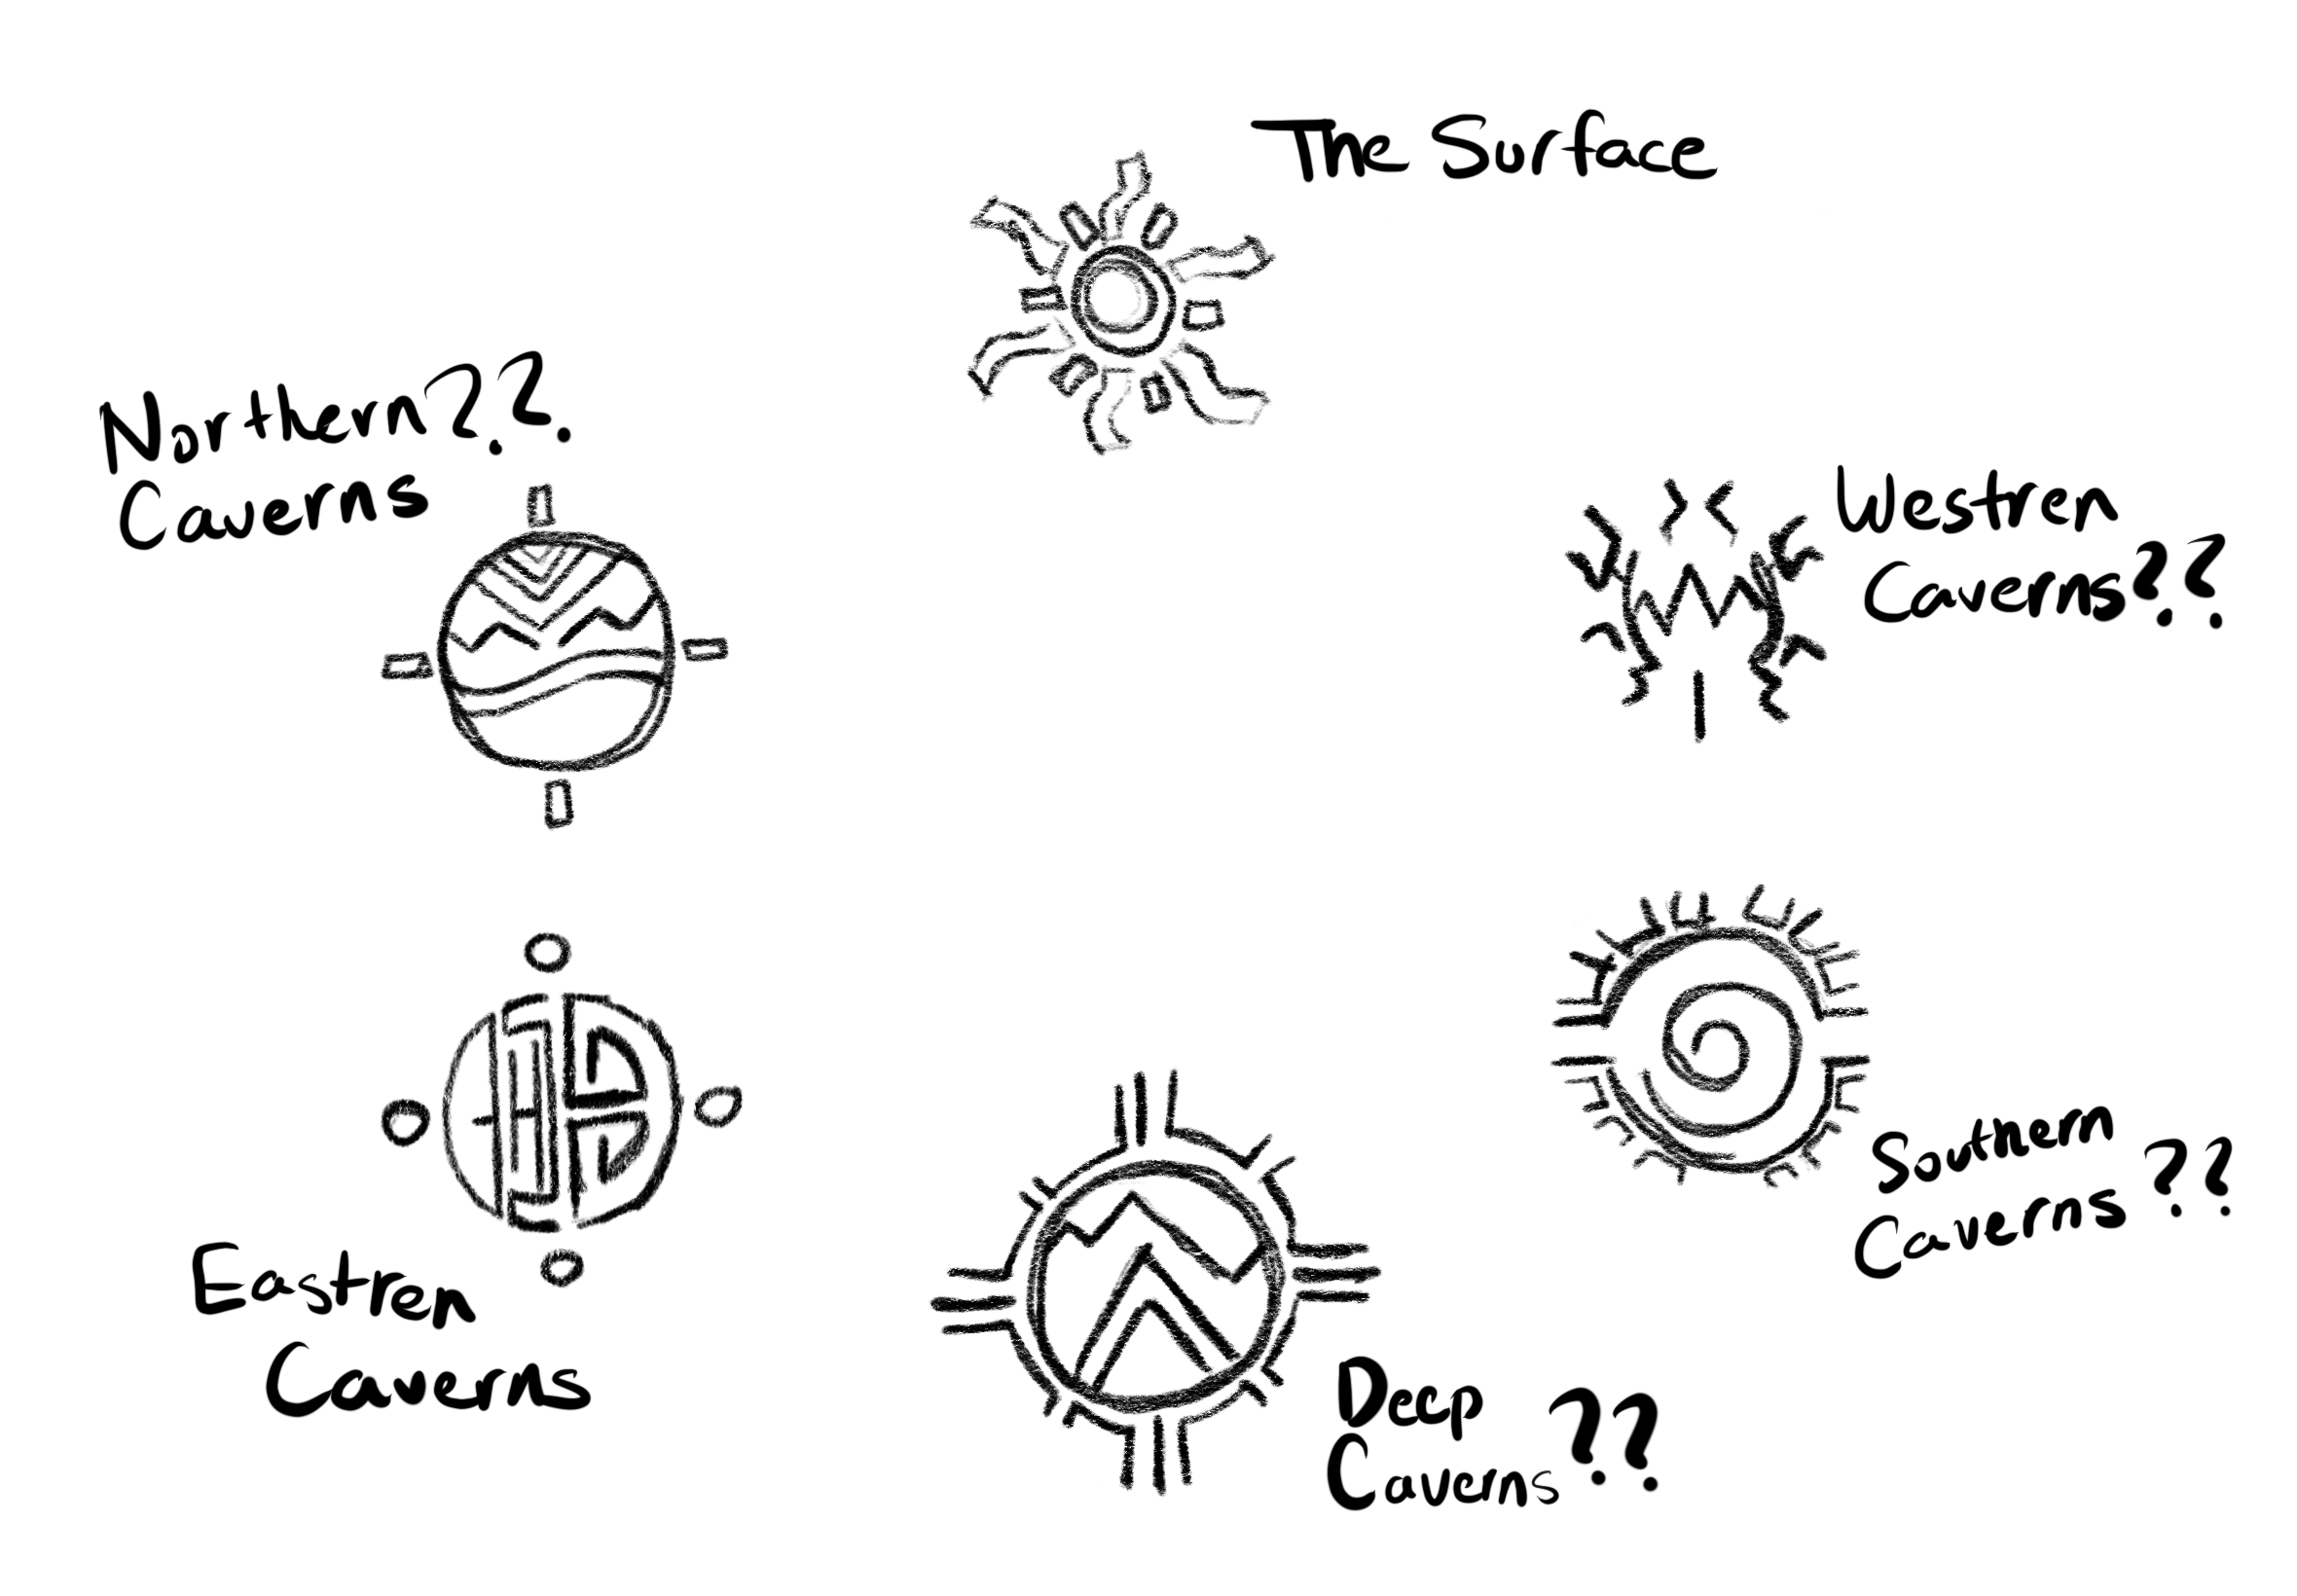 The Surface
Northern??
Caverns
Westren
Caverns??
Southern
Caverns ??
Eastren
Caverns
Deep
Caverns ??